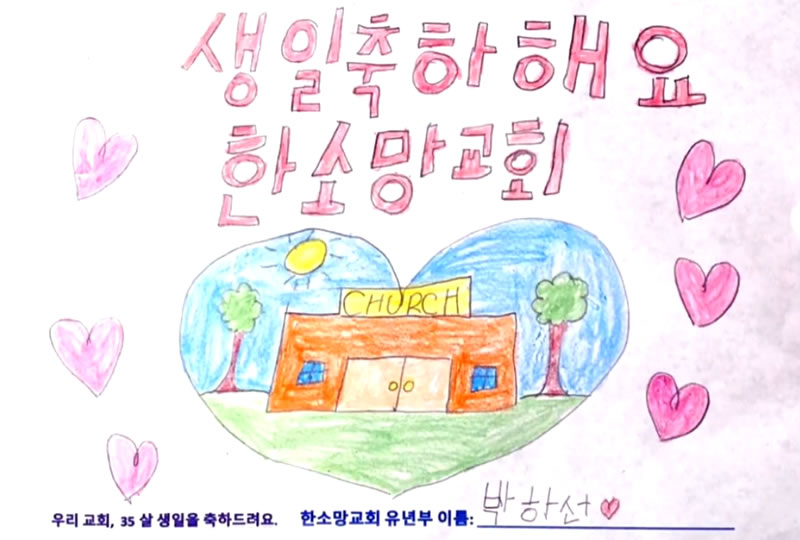 생일축하해요
한소망교회
CHURCH
우리 교회, 35 살 생일을 축하드려요. 한소망교회 유년부 이름: 박하선